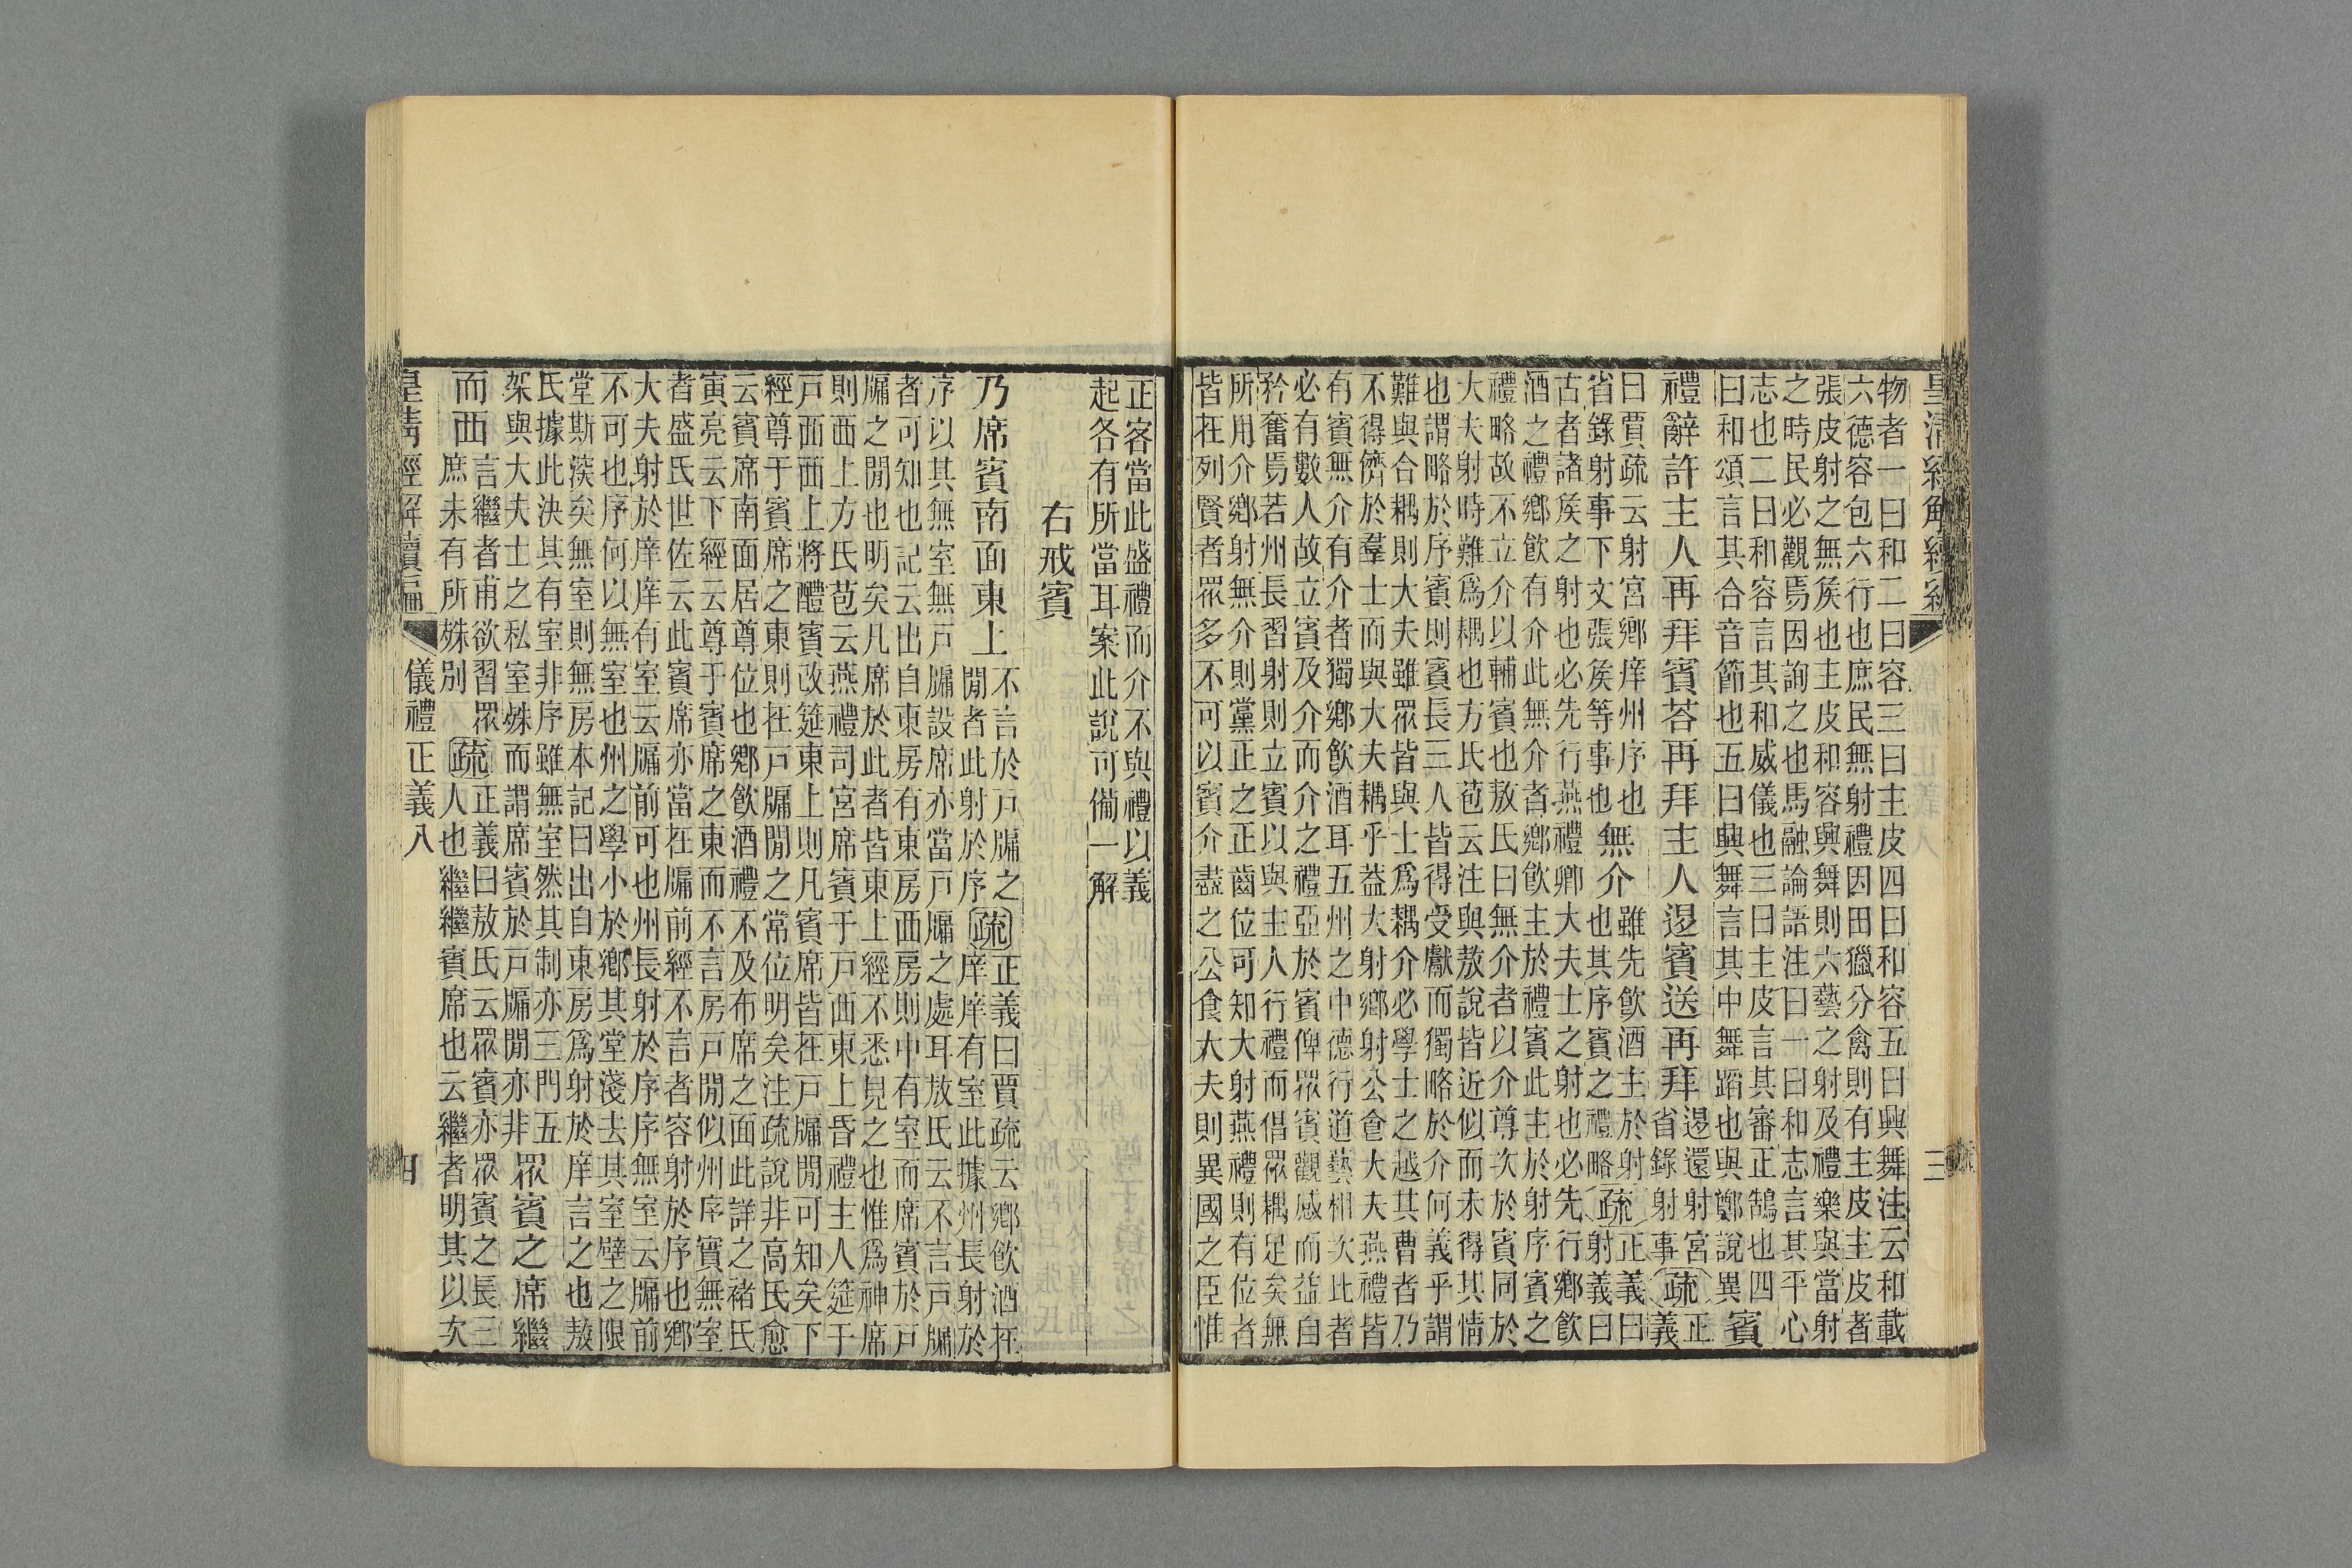 皇清經解續編
三
物者一曰和二曰容三曰主皮四曰和容五曰興舞注云和載
六德容包六行也庶民無射禮因田獵分禽則有主皮主皮者
張皮射之無矦也主皮和容興舞則六藝之射及禮樂與當射
之時民必觀焉因詢之也馬融論語注曰一曰和志言其平心
志也二曰和容言其和威儀也三曰主皮言其審正鵠也四
曰和頌言其合音節也五曰興舞言其中舞蹈也與鄭說異
賓
禮辭許主人再拜賓荅再拜主人退賓送再拜
退還射宮
省錄射事
疏
正
義
曰賈疏云射宮鄉庠州序也
省錄射事下文張矦等事也
無介
雖先飲酒主於射
也其序賓之禮略
疏
正義曰
射義曰
古者諸矦之射也必先行燕禮卿大夫士之射也必先行鄉飲
酒之禮鄉飲有介此無介者鄉飲主於禮賓此主於射序賓之
禮略故不立介以輔賓也敖氏曰無介者以介尊次於賓同於
大夫射時難爲耦也方氏苞云注與敖說皆近似而未得其情
也謂略於序賓則賓長三人皆得受獻而獨略於介何義乎謂
難與合耦則大夫雖眾皆與士爲耦介必學士之越其曹者乃
不得儕於羣士而與大夫耦乎益大射鄉射公食大夫燕禮皆
有賓無介有介者獨鄉飲酒耳五州之中德行道藝相次比者
必有數人故立賓及介而介之禮亞於賓俾眾賓觀感而益自
矜奮焉若州長習射則立賓以與主人行禮而倡眾耦足矣無
所用介鄉射無介則黨正之正齒位可知大射燕禮則有位者
皆在列賢者眾多不可以賓介盡之公食大夫則異國之臣惟
正客當此盛禮而介不與禮以義
起各有所當耳案此說可備一解
右戒賓
乃席賓南面東上
不言於戶牖之
閒者此射於序
疏
正義曰賈疏云鄉飲酒在
庠庠有室此據州長射於
序以其無室無戶牖設席亦當戶牖之處耳敖氏云不言戶牖
者可知也記云出自東房有東房西房則中有室而席賓於戶
牖之閒也明矣凡席於此者皆東上經不悉見之也惟爲神席
則西上方氏苞云燕禮司宮席賓于戶西東上昏禮主人筵于
戶西西上將醴賓改筵東上則凡賓席皆在戶牖閒可知矣下
經尊于賓席之東則在戶牖閒之常位明矣注疏說非高氏愈
云賓席南面居尊位也鄉飲酒禮不及布席之面此詳之褚氏
寅亮云下經云尊于賓席之東而不言房戶閒似州序實無室
者盛氏世佐云此賓席亦當在牖前經不言者容射於序也鄉
大夫射於庠庠有室云牖前可也州長射於序序無室云牖前
不可也序何以無室也州之學小於鄉其堂淺去其室壁之限
堂斯湥矣無室則無房本記曰出自東房爲射於庠言之也敖
氏據此決其有室非序雖無室然其制亦三門五
架與大夫士之私室姝而謂席賓於戶牖閒亦非
眾賓之席繼
而西
言繼者甫欲習眾
庶未有所殊別
疏
正義曰敖氏云眾賓亦眾賓之長三
人也繼繼賓席也云繼者明其以次
皇清經解續編
儀禮正義八
四